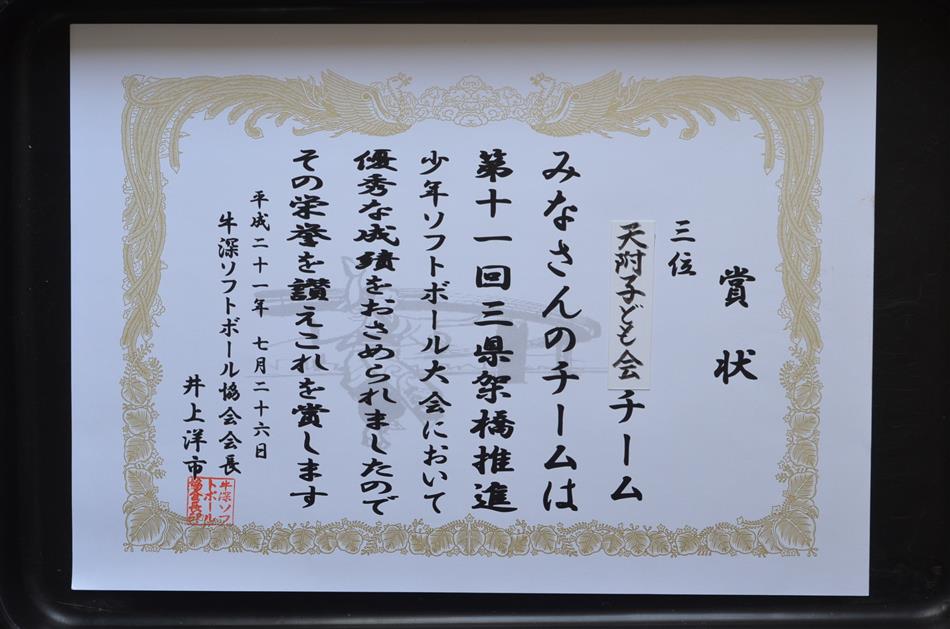 賞状
三位
天附子ども会チーム
みなさんのチームは
第十一回三県架橋推進
少年ソフトボール大会において
優秀な成績をおさめられましたので
その栄誉を讃えこれを賞します
平成二十一年 七月二十六日
牛深ソフトボール協会会長
井上洋市
牛深ソフ
トボール
協会長印